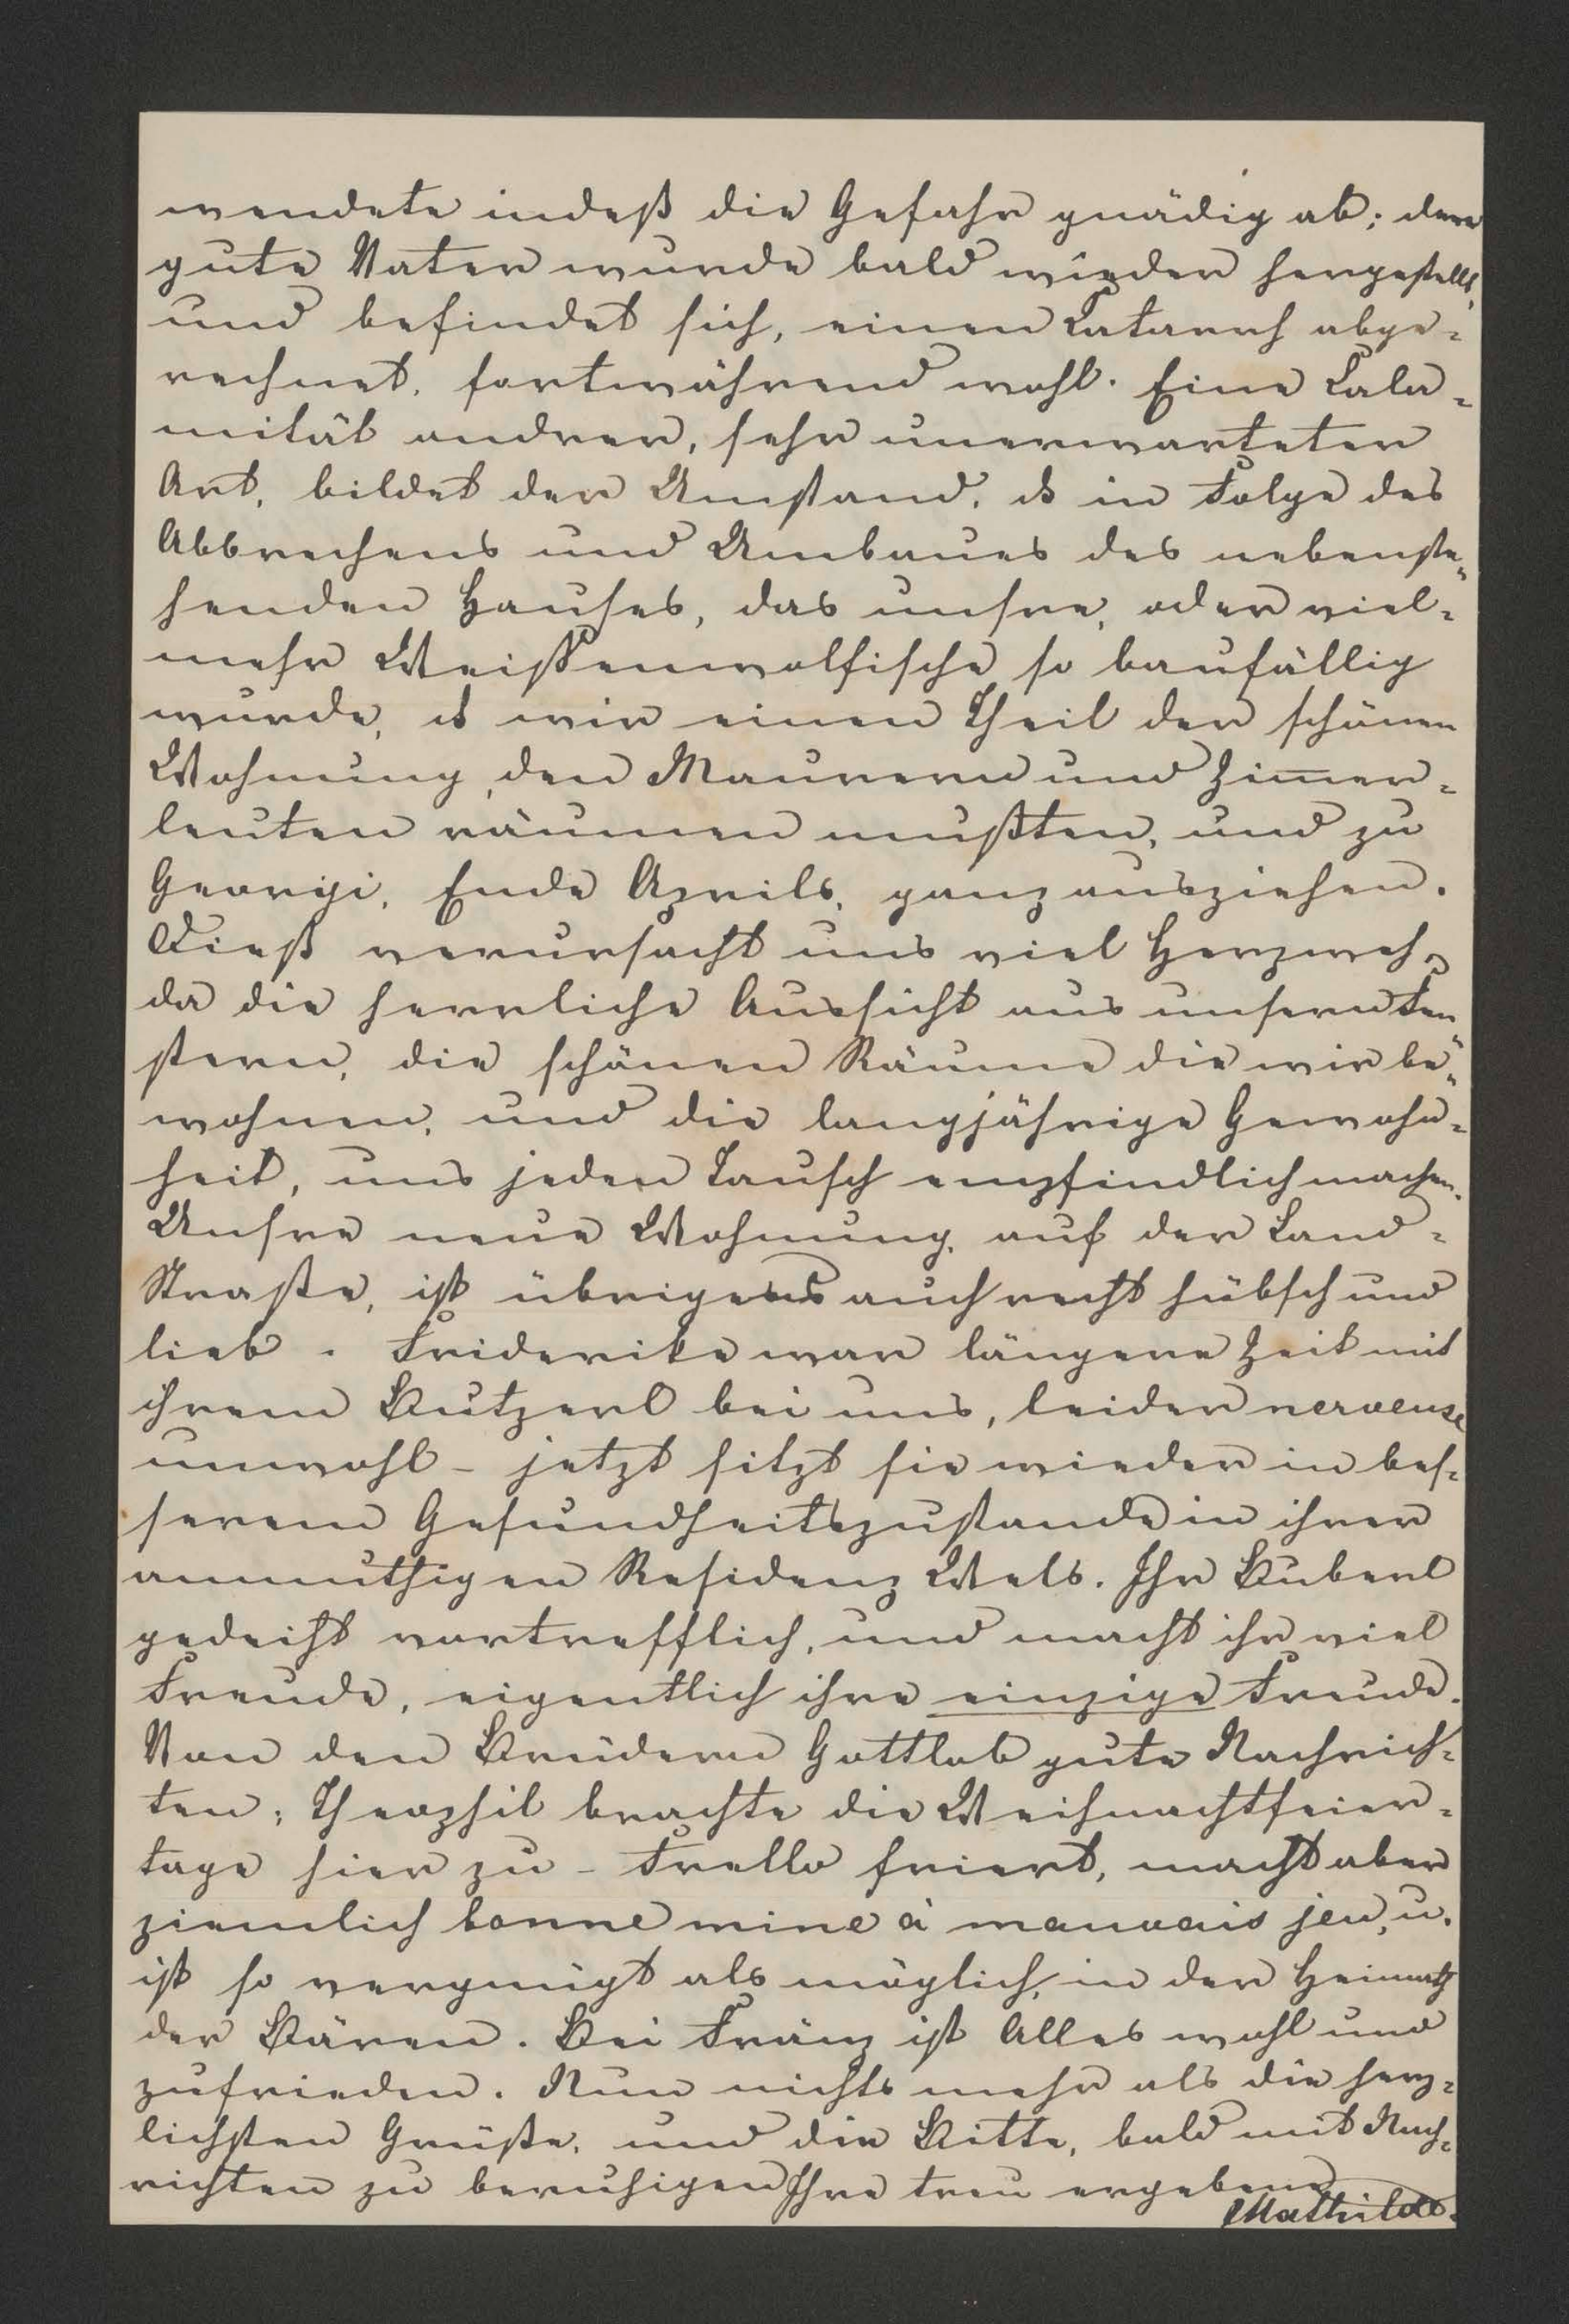 wendete indeß die Gefahr gnädig ab; der
gute Vater wurde bald wieder hergestellt,
und befindet sich, einen Catarrh abge=
rechnet, fortwährend wohl. Eine Cala=
mität andrer, sehr unerwarteter
Art, bildet der Umstand, ds in Folge des
Abbrechens und Umbaues des nebenste=
henden Hauses, das unsre, oder viel=
mehr Weißenwolfische so baufällig
wurde, ds wir einen Theil der schönen
Wohnung, den Maurern und Zim̅er=
leuten räumen mußten, und zu
Georgi, Ende Aprils, ganz ausziehen.
Dieß verursacht uns viel Herzweh,
da die herrliche Aussicht aus unsern Fen=
stern, die schönen Räume die wir be=
wohnen, und die langjährige Gewohn=
heit, uns jeden Tausch empfindlich machen.
Unsre neue Wohnung, auf der Land=
Straße, ist übrigens auch recht hübsch und
lieb. Friderike war längere Zeit mit
ihrem Butzerl bei uns, leider nerveuse
unwohl – jetzt sitzt sie wieder in bes=
serem Gesundheitszustande in ihrer
anmuthigen Residenz Wels. Ihr Buberl
gedeiht vortrefflich, und macht ihr viel
Freude, eigentlich ihre einzige Freude.
Von den Brüdern Gottlob gute Nachrich=
ten; Theophil brachte die Weihnachtfeier=
tage hier zu – Frello friert, macht aber
ziemlich bonne mine à mauvais jeu, u.
ist so vergnügt als möglich, in der Heimath
der Bären. Bei Fränz ist Alles wohl und
zufrieden. Nun nichts mehr als die herz=
lichsten Grüße, und die Bitte, bald mit Nach=
richten zu beruhigen Ihre treu ergebene
Mathilde.